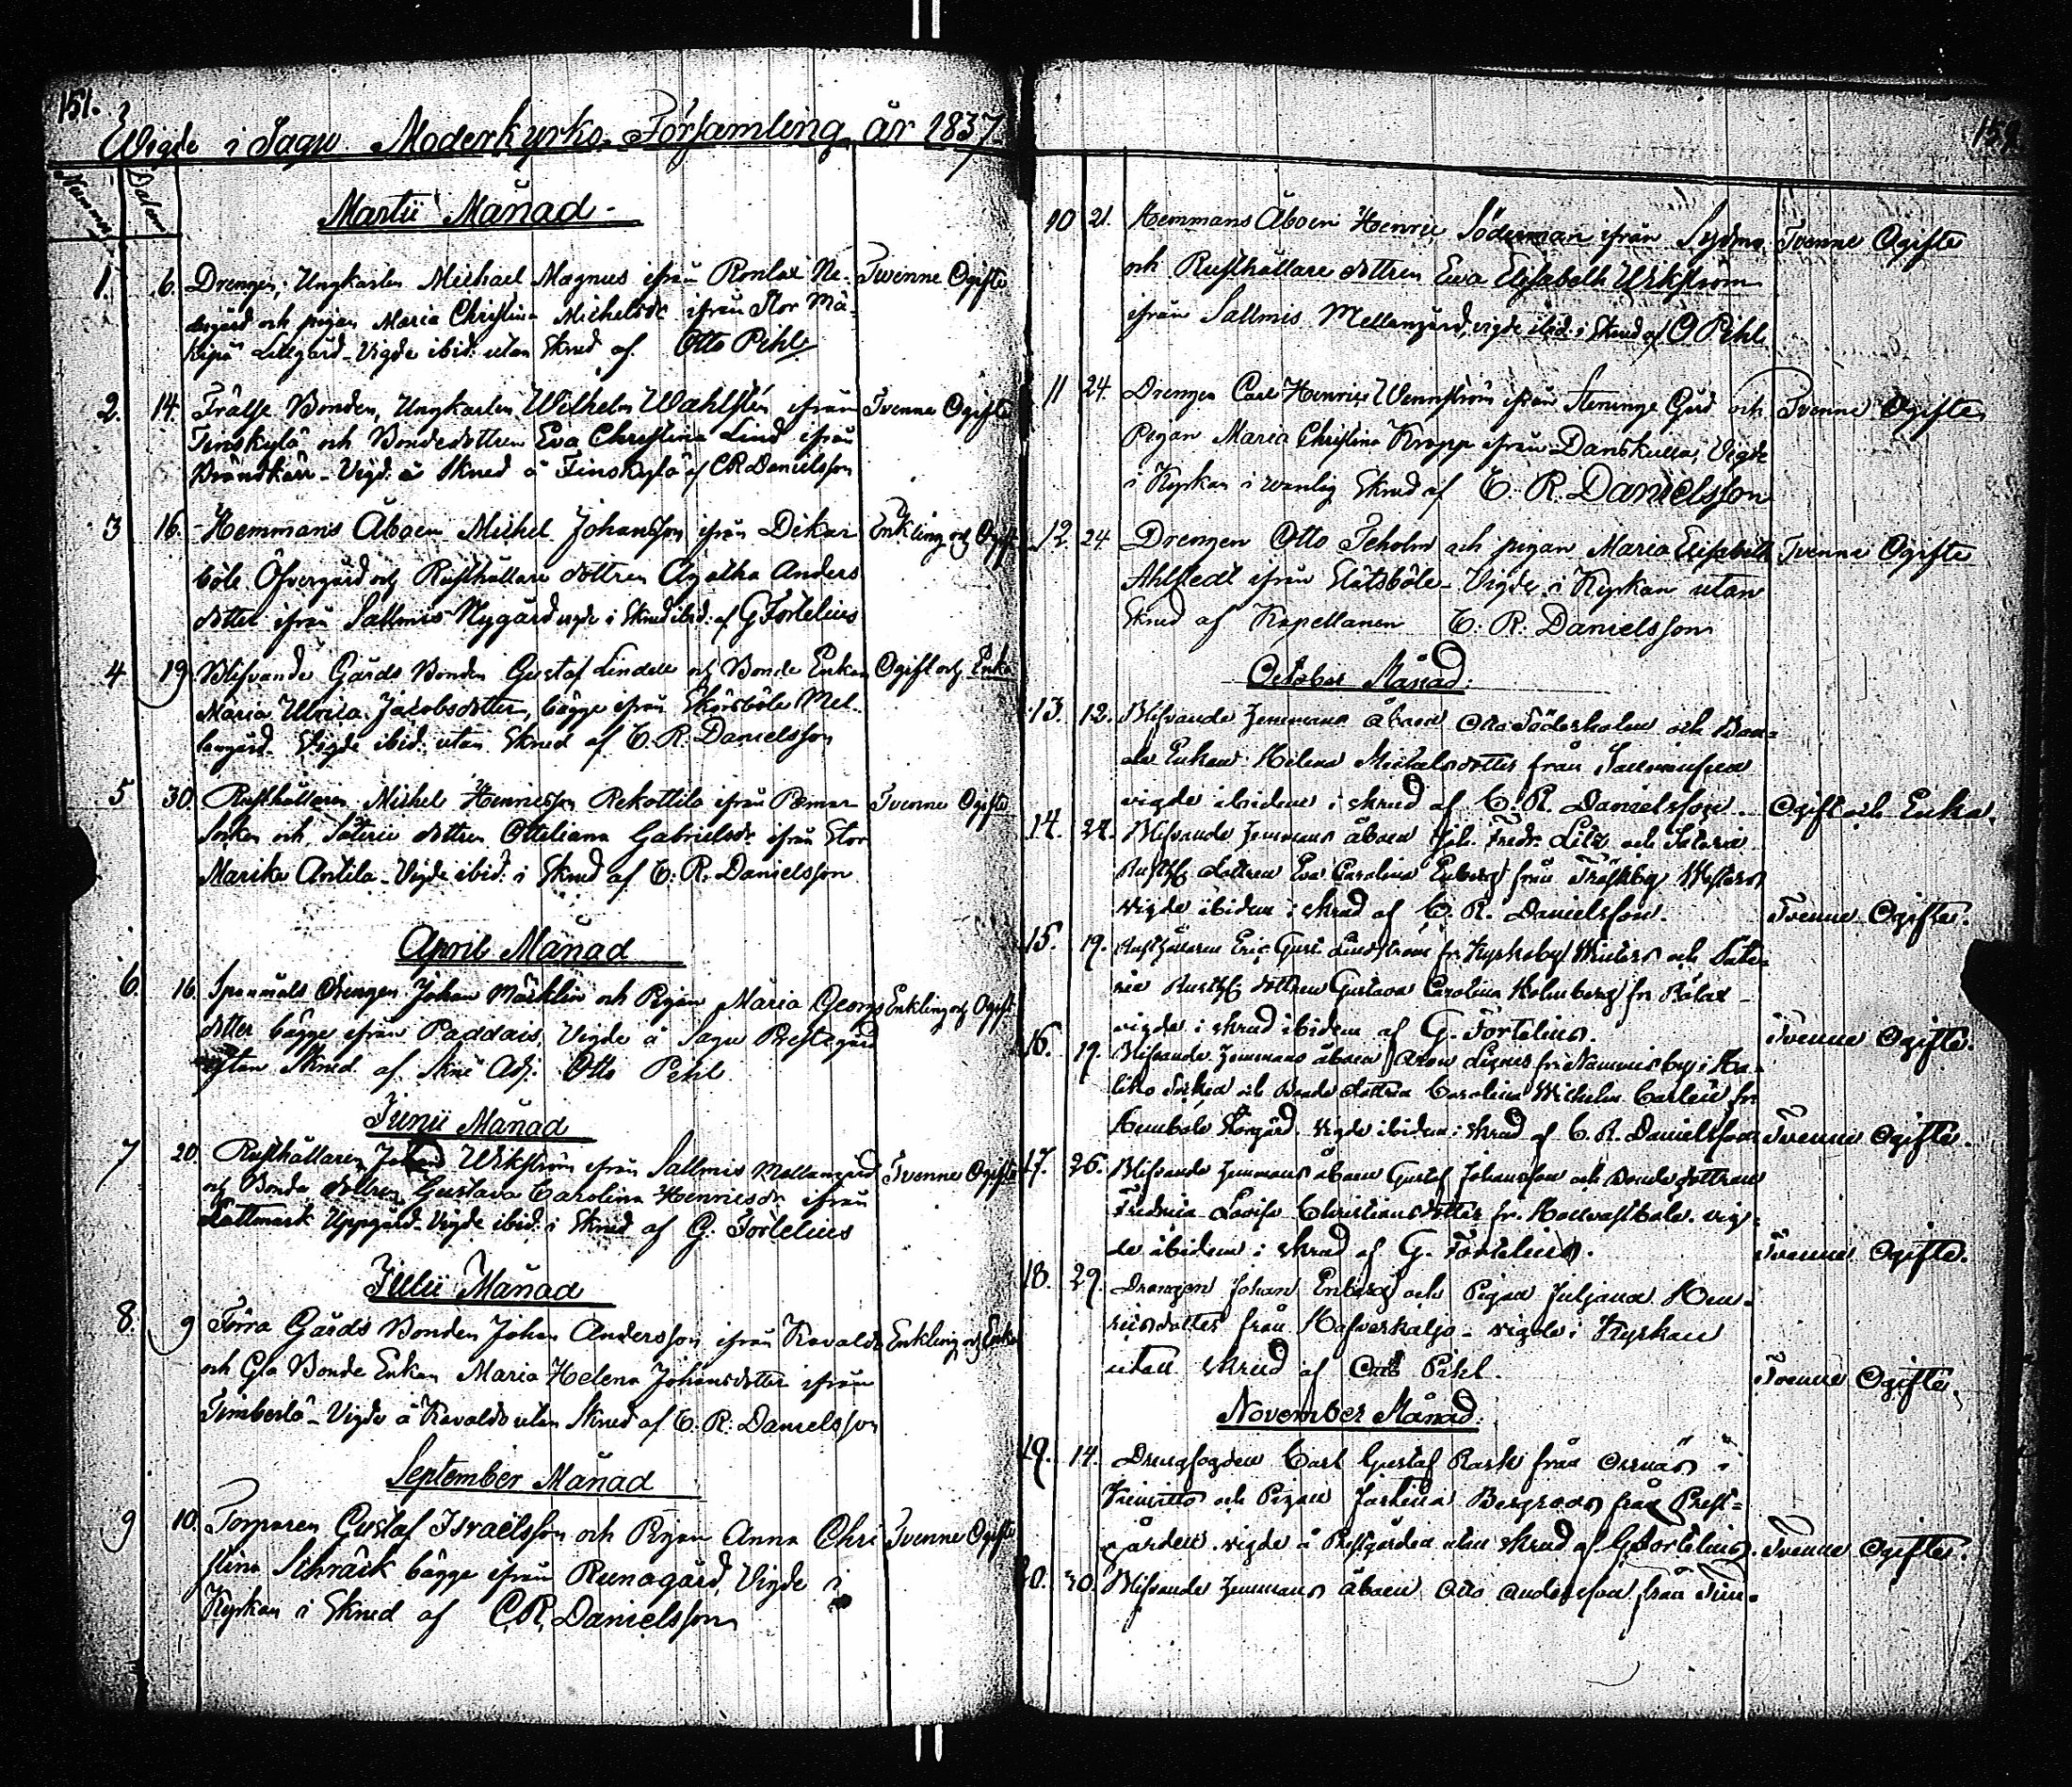 151.
Wigde i Sagu Moderkyrko Församling år 1837.
Nummer Datum
Martii Månad
1. 6. Drengen, Ungkarlen Michael Magnus ifrån Ronlax Ne- Tvenne Ogifte
dergård och pigan Maria Christina Michelsdr ifrån Stor Mä-
kipä Lillgård - Vigde ibid: utan Skrud af Otto Pihl
2. 14. Frälse Bonden, Ungkarlen Wilhelm Wahlstén ifrån Tvenne Ogifte
Finskylä och Bondedottren Eva Christina Lind ifrån
Brändkärr - Vigd: i Skrud å Finskylä af C R Danielsson
3 16. Hemmans Åboen Michel Johansson ifrån Dekar Enkling och Ogift
böle Öfvergård och Rusthållare dottren Agatha Anders
dotter ifrån Sallmis Nygård vigde i Skrud ibid: af G Fortelius
4 19 Blifvande Gårds Bonden Gustaf Lindell och Bonde Enkan Ogift och Enka
Maria Ulrica Jacobsdotter, bägge ifrån Skörsböle Mel-
langård. Vigde ibid: utan Skrud af C. R. Danielsson
5 30. Rusthållaren Michel Henricsson Rekottila ifrån Pemar Tvenne Ogifte
Socken och Säterie dottren Otteliana Gabrielsdr ifrån Stor
Marika Antila - Vigde ibid: i Skrud af C. R. Danielsson
April Månad
6. 16. Spanmåls Drengen Johan Märklin och Pigan Maria Georgs Enkling och Ogift
dotter bägge ifrån Paddais, Vigde å Sagu Prestegård
utan Skrud af Adj. Otto Pihl
Junii Månad
7 20. Rusthållaren Johan Wikström ifrån Sallmis Mellangård Tvenne Ogifte
och Bonde dottren Gustava Carolina Henricsdr ifrån
Lattmark Uppgård - Vigde ibid: i Skrud af G. Fortelius
Julii Månad
8. 9 Förra Gårds Bonden Johan Andersson ifrån Kavalds Enkling och Enka
och Gla Bonde Enkan Maria Helena Johansdotter ifrån
Timberlä - Vigde å Kavalds utan Skrud af C. R. Danielsson
September Månad
9 10. Torparen Gustaf Israëlsson och Pigan Anna Chri Tvenne Ogifte
stina Schräck bägge ifrån Runagård, Vigde i
Kyrkan i Skrud af C. R. Danielsson
10 21. Hemmans Åboen Henric Söderman ifrån Sydmo Tvenne Ogifte
och Rusthållare dottren Eva Elisabeth Wikström
ifrån Sallmis Mellangård, vigde ibid: i Skrud af O Pihl
11 24. Drengen Carl Henric Wennström ifrån Steninge Gård och Tvenne Ogifte
Pigan Maria Christina Kropp ifrån Danskulla, Vigde
i Kyrkan i vanlig Skrud af C. R. Danielsson
12. 24 Drengen Otto Seholm och pigan Maria Elisabeth Tvenne Ogifte
Ahlstedt ifrån Slätsböle - Vigde i Kyrkan utan
Skrud af Kapellanen C. R. Danielsson
October Månad.
13. 12. Blifvande Hemmans åboen Otto Söderholm och Bon-
de Enkan Helena Michelsdotter från
vigde ibidem i skrud af C. R. Danielsson. Ogift och Enka.
14. 24. Blifvande Hemmans åboen Joh. Fredr. och Säterie
Rusth. dottren Eva Carolina Enberg från Träskby Westers
vigde ibidem i skrud af C. R. Danielsson. Tvenne Ogifte.
15. 19. Rusthållaren Eric Gust. Lindström fr. Kyrkoby och Säte-
rie Rusth. dottren Gustava Carolina Holmberg fr.
vigde i skrud ibidem af G. Fortelius. Tvenne Ogifte.
16. 19. Blifvande Hemmans åboen Aron fr. i Ha-
liko Socken och Bonde dottren Carolina Wilhelm. Carlen fr.
Storgård. vigde ibidem i skrud af C. R. Danielsson Tvenne Ogifte.
17. 26. Blifvande Hemmans åboen Gustaf Johansson och Bonde dottren
Fredrica Lovisa Christiansdotter fr. vig-
de ibidem i skrud af G. Fortelius. Tvenne Ogifte.
18. 29. Drengen Johan Enberg och Pigan Juljana Hen-
ricsdotter från Hafverkaljo - vigde i Kyrkan
utan skrud af Otto Pihl. Tvenne Ogifte.
November Månad.
19. 14. Drengfogden Carl Gustaf Rask från i
och Pigan Justina från Prest-
gården. vigde å Prestgården utan skrud af G. Fortelius. Tvenne Ogifte.
20. 30. Blifvande Hemmans åboen Otto Andersson från